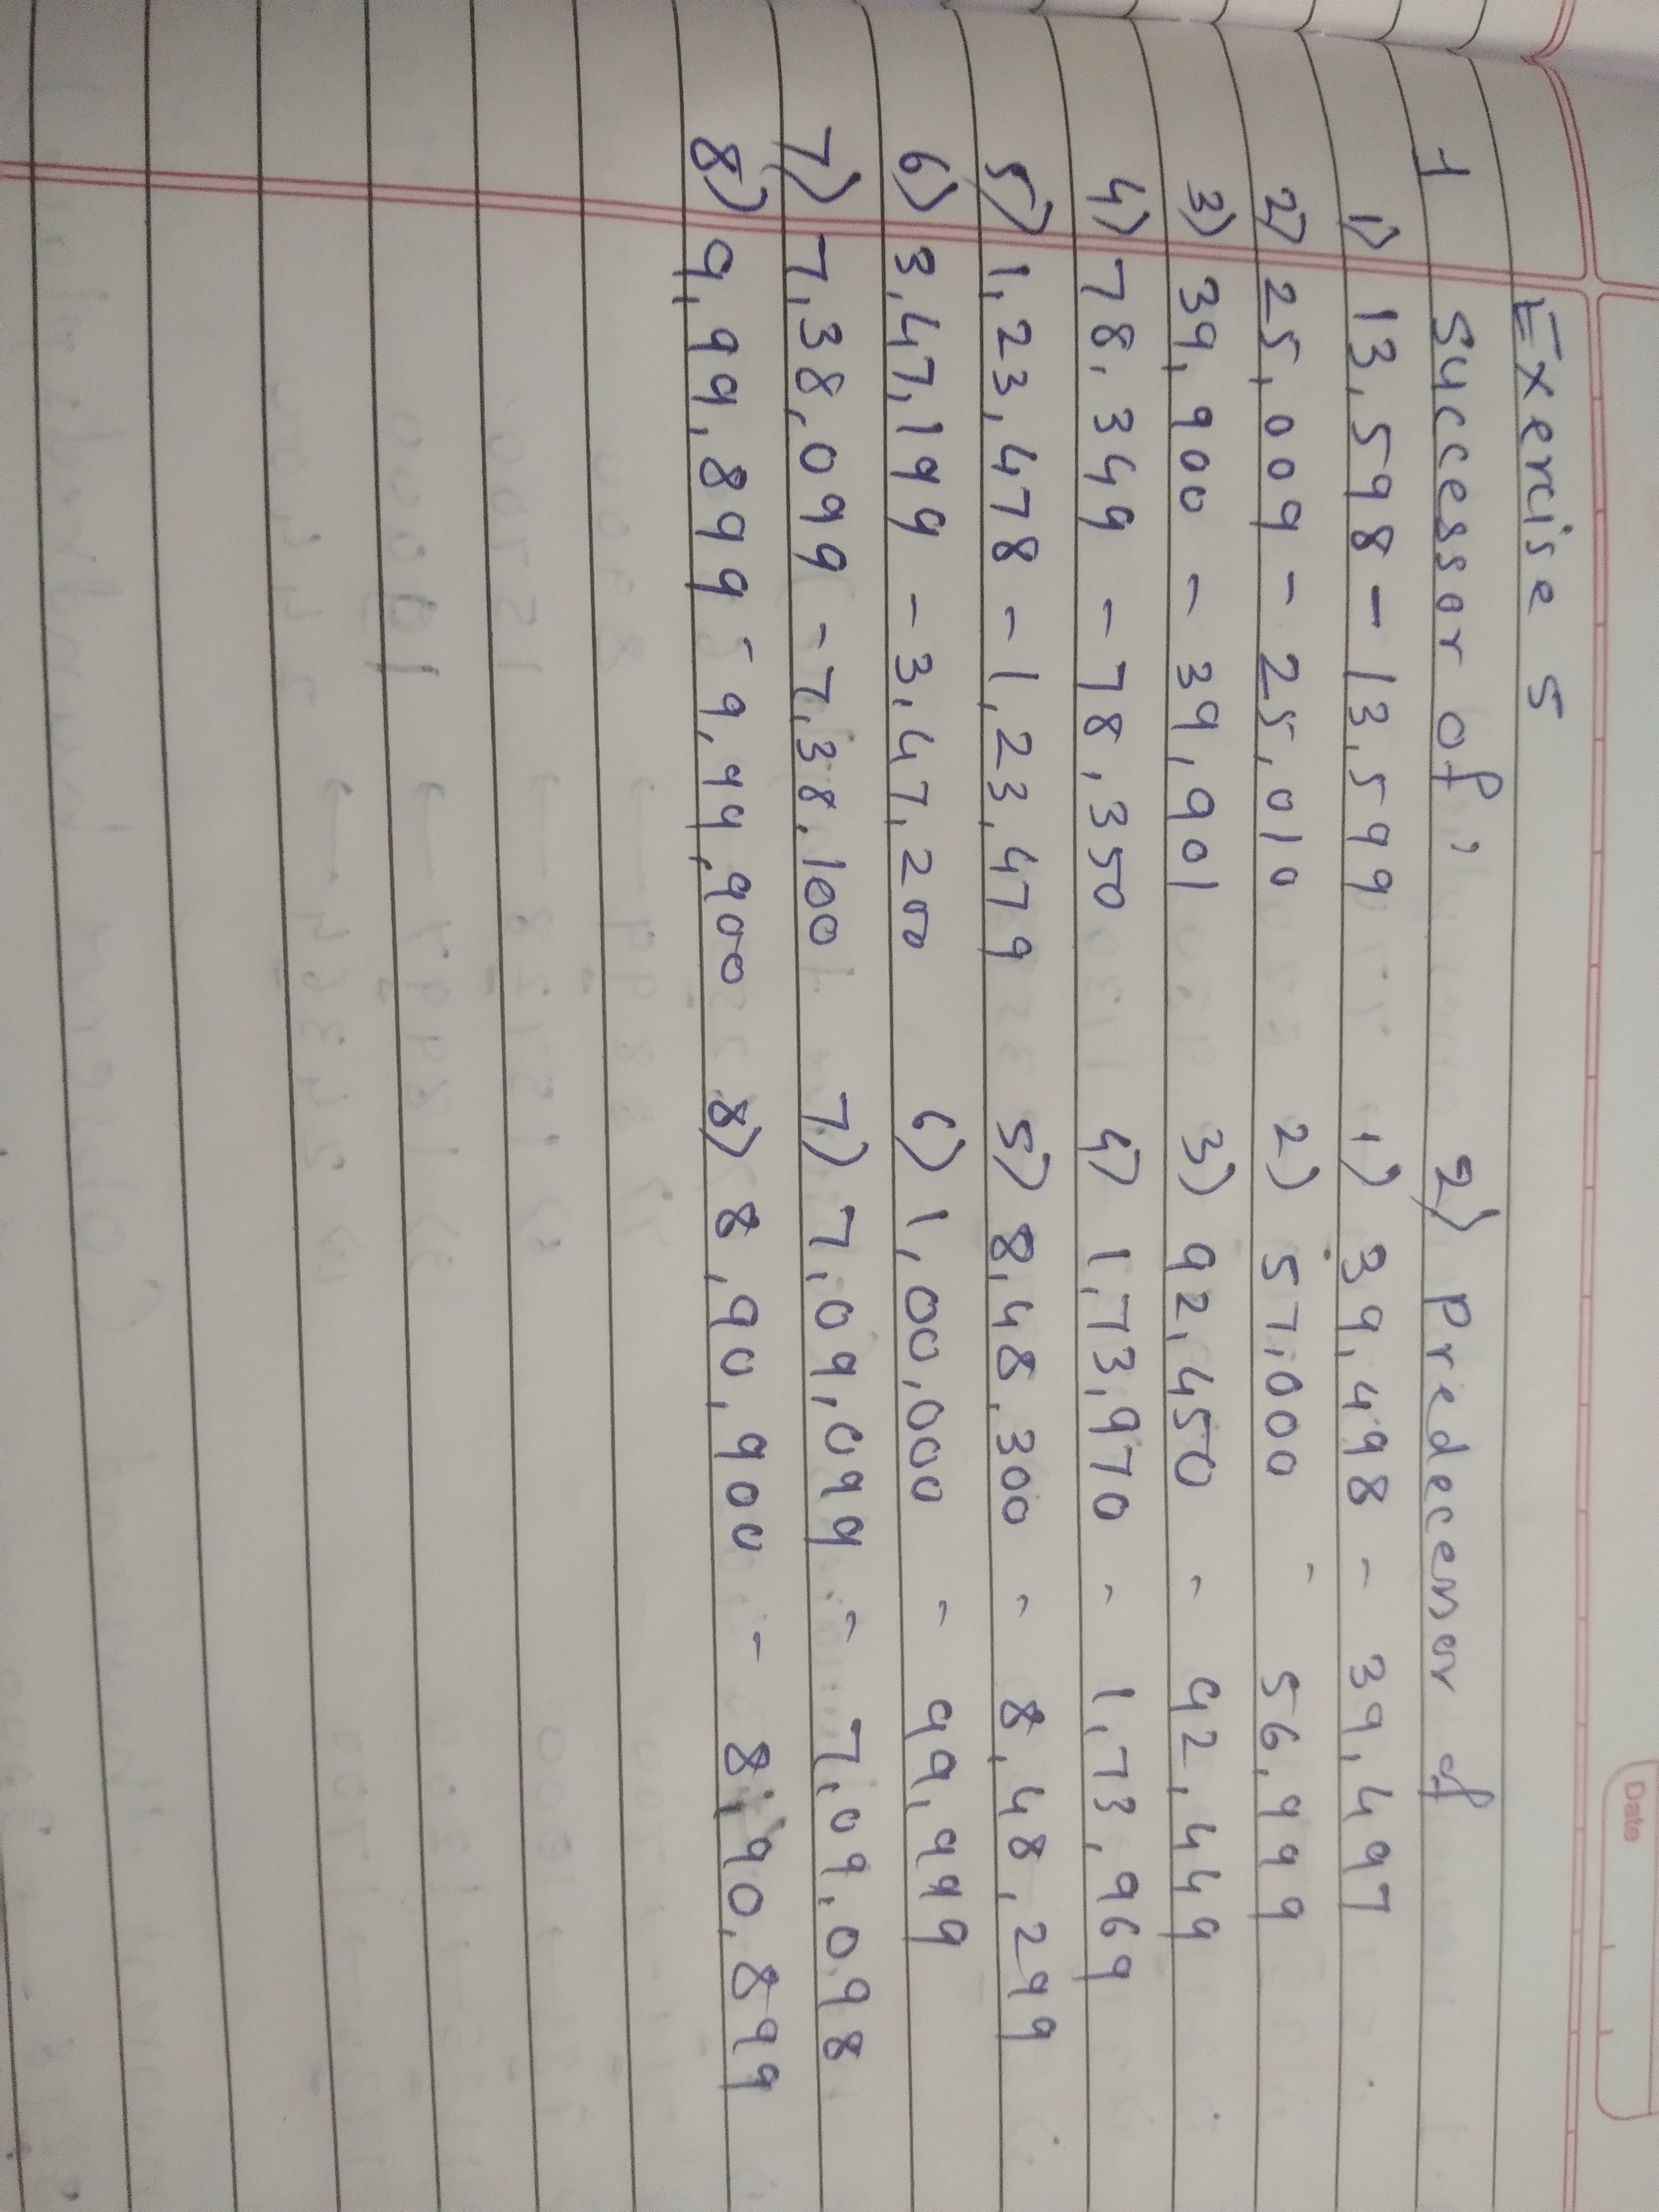 Date
Exercise 5
1 Successor of, 2) Predecensor of
1) 13,598 - 13,599 1) 39,498 - 39,497
2) 25,009 - 25,010 2) 57,000 - 56,999
3) 39,900 - 39,901 3) 92,450 - 92,449
4) 78,349 - 78,350 4) 1,73,970 - 1,73,969
5) 1,23,478 - 1,23,479 5) 8,48,300 - 8,48,299
6) 3,47,199 - 3,47,200 6) 1,00,000 - 99,999
7) 7,38,099 - 7,38,100 7) 7,09,099 - 7,09,098
8) 9,99,899 - 9,99,900 8) 8,90,900 - 8,90,899